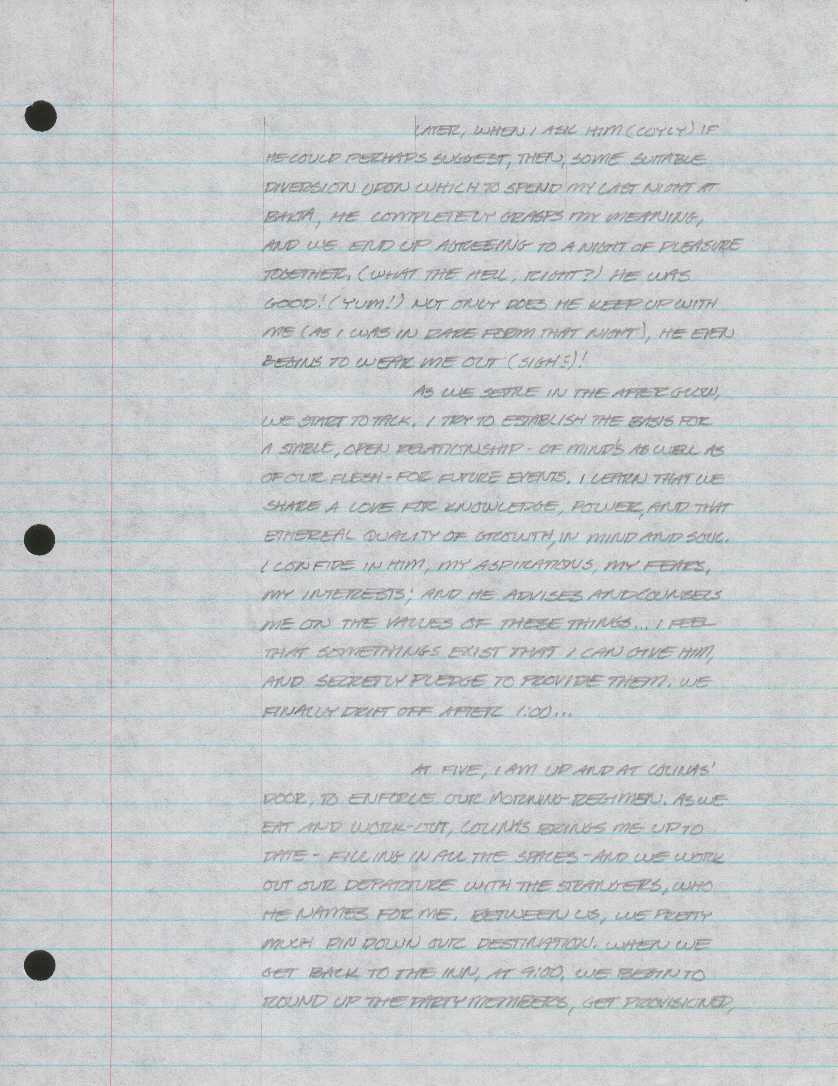 LATER, WHEN I ASK HIM (COYLY) IF
HE COULD PERHAPS SUGGEST, THEN, SOME SUITABLE
DIVERSION UPON WHICH TO SPEND MY LAST NIGHT AT
BAKTA, HE COMPLETELY GRASPS MY MEANING,
AND WE END UP AGREEING TO A NIGHT OF PLEASURE
TOGETHER. (WHAT THE HELL, RIGHT?) HE WAS
GOOD! (YUM!) NOT ONLY DOES HE KEEP UP WITH
ME (AS I WAS IN RARE FORM THAT NIGHT), HE EVEN
BEGINS TO WEAR ME OUT (SIGHS)!
AS WE SETTLE IN THE AFTERGLOW,
WE START TO TALK. I TRY TO ESTABLISH THE BASIS FOR
A STABLE, OPEN RELATIONSHIP - OF MIND'S AS WELL AS
OF OUR FLESH - FOR FUTURE EVENTS. I LEARN THAT WE
SHARE A LOVE FOR KNOWLEDGE, POWER, AND THAT
ETHEREAL QUALITY OF GROWTH, IN MIND AND SOUL.
I CONFIDE IN HIM, MY ASPIRATIONS, MY FEARS,
MY INTERESTS; AND HE ADVISES AND COUNSELS
ME ON THE VALUES OF THESE THINGS... I FEEL
THAT SOMETHINGS EXIST THAT I CAN GIVE HIM,
AND SECRETLY PLEDGE TO PROVIDE THEM. WE
FINALLY DRIFT OFF AFTER 1:00...
AT FIVE, I AM UP AND AT COLINAS'
DOOR, TO ENFORCE OUR MORNING REGIMEN. AS WE
EAT AND WORK-OUT, COLINAS BRINGS ME UP TO
DATE - FILLING IN ALL THE SPACES - AND WE WORK
OUT OUR DEPARTURE WITH THE STRANGERS, WHO
HE NAMES FOR ME. BETWEEN US, WE PRETTY
MUCH PIN DOWN OUR DESTINATION. WHEN WE
GET BACK TO THE INN, AT 9:00, WE BEGIN TO
ROUND UP THE PARTY MEMBERS, GET PROVISIONED,